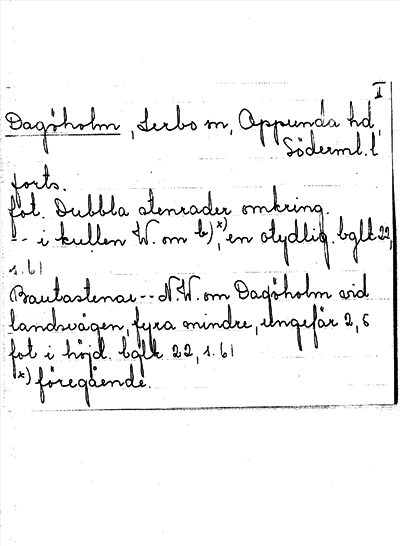 II
Dagöholm, Lerbo sn, Oppunda hd,
Söderml. l
forts.
fot. Dubbla stenrader omkring.
-- i kullen W. om b) x), en otydlig. bglk 22,
s. 61
Bautastenar -- N.W. om Dagöholm vid
landsvägen, fyra mindre, ungefär 2, 5
fot i höjd. bglk 22, s. 61
x) föregående.